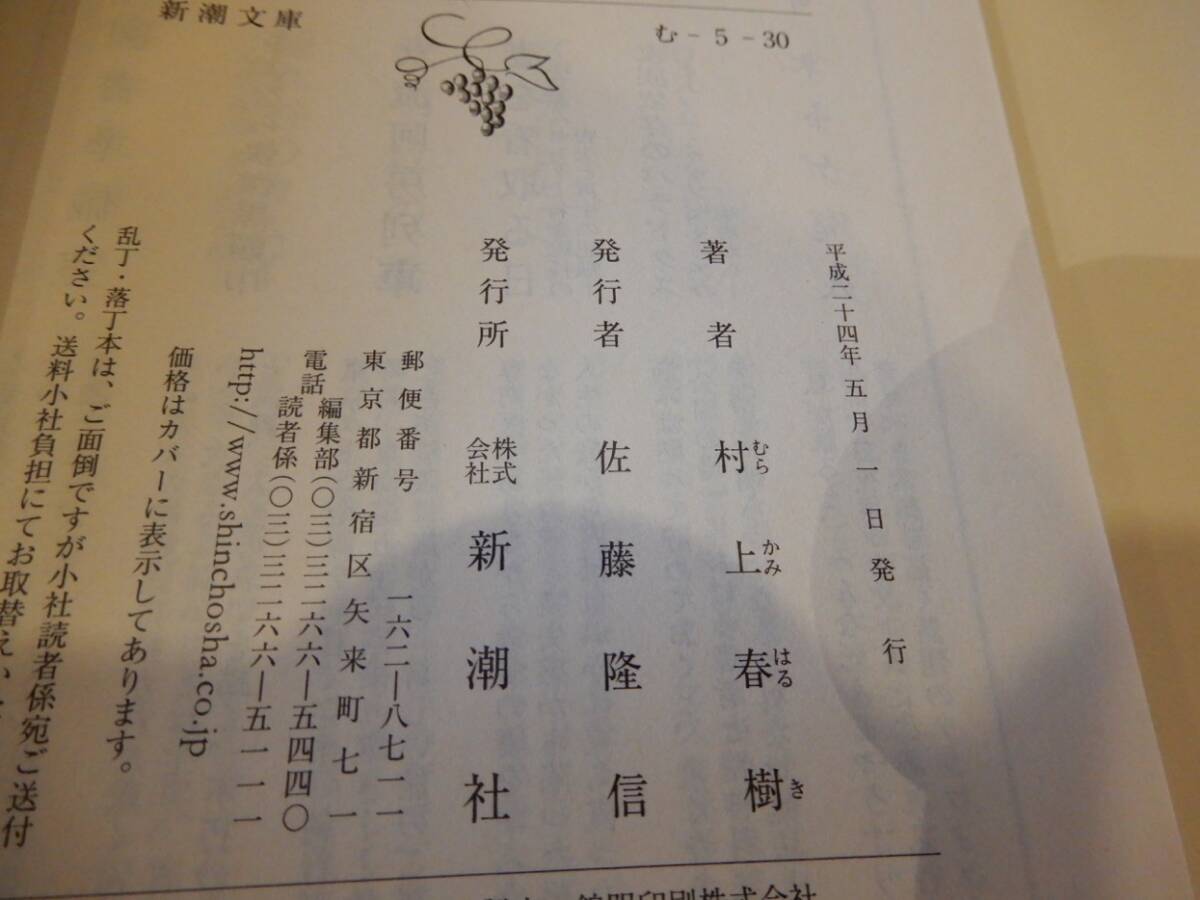 新潮文庫
む-5-30
平成二十四年五月一日発行
著者 村上春樹
むらかみはるき
発行者 佐藤隆信
発行所 株式会社 新潮社
郵便番号 一六二―八七一一
東京都新宿区矢来町七一
電話 編集部(〇三)三二六六―五四四〇
読者係(〇三)三二六六―五一一一
http://www.shinchosha.co.jp
価格はカバーに表示してあります。
乱丁・落丁本は、ご面倒ですが小社読者係宛ご送付
ください。送料小社負担にてお取替えい
印刷株式会社